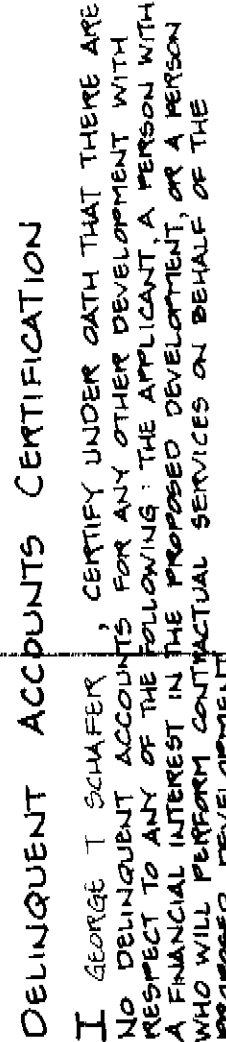 DELINQUENT ACCOUNTS CERTIFICATION
I GEORGE T SCHAFER, CERTIFY UNDER OATH THAT THERE ARE
NO DELINQUENT ACCOUNTS FOR ANY OTHER DEVELOPMENT WITH
RESPECT TO ANY OF THE FOLLOWING: THE APPLICANT, A PERSON WITH
A FINANCIAL INTEREST IN THE PROPOSED DEVELOPMENT, OR A PERSON
WHO WILL PERFORM CONTRACTUAL SERVICES ON BEHALF OF THE
PROPOSED DEVELOPMENT